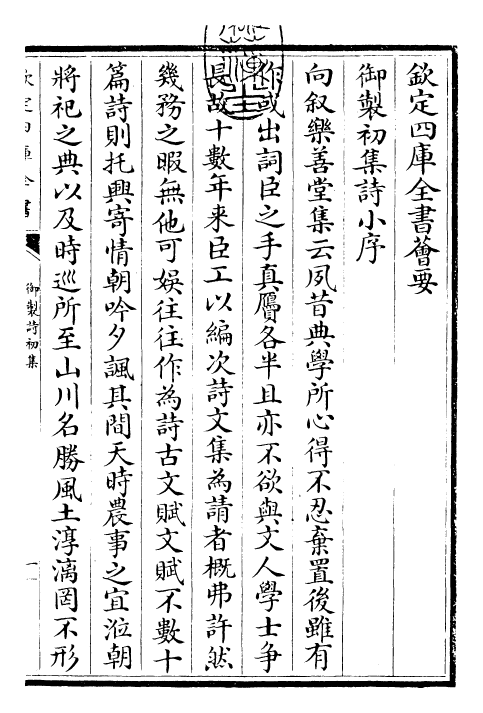 欽定四庫全書薈要
御製初集詩小序
向叙樂善堂集云夙昔典學所心得不忍棄置後雖有
作或出詞臣之手真贋各半且亦不欲與文人學士争
長故十數年来臣工以編次詩文集為請者概弗許然
幾務之暇無他可娛往往作為詩古文賦文賦不數十
篇詩則托興寄情朝吟夕諷其間天時農事之宜涖朝
將祀之典以及時巡所至山川名勝風土淳漓罔不形
欽定四庫全書
御製詩初集
一